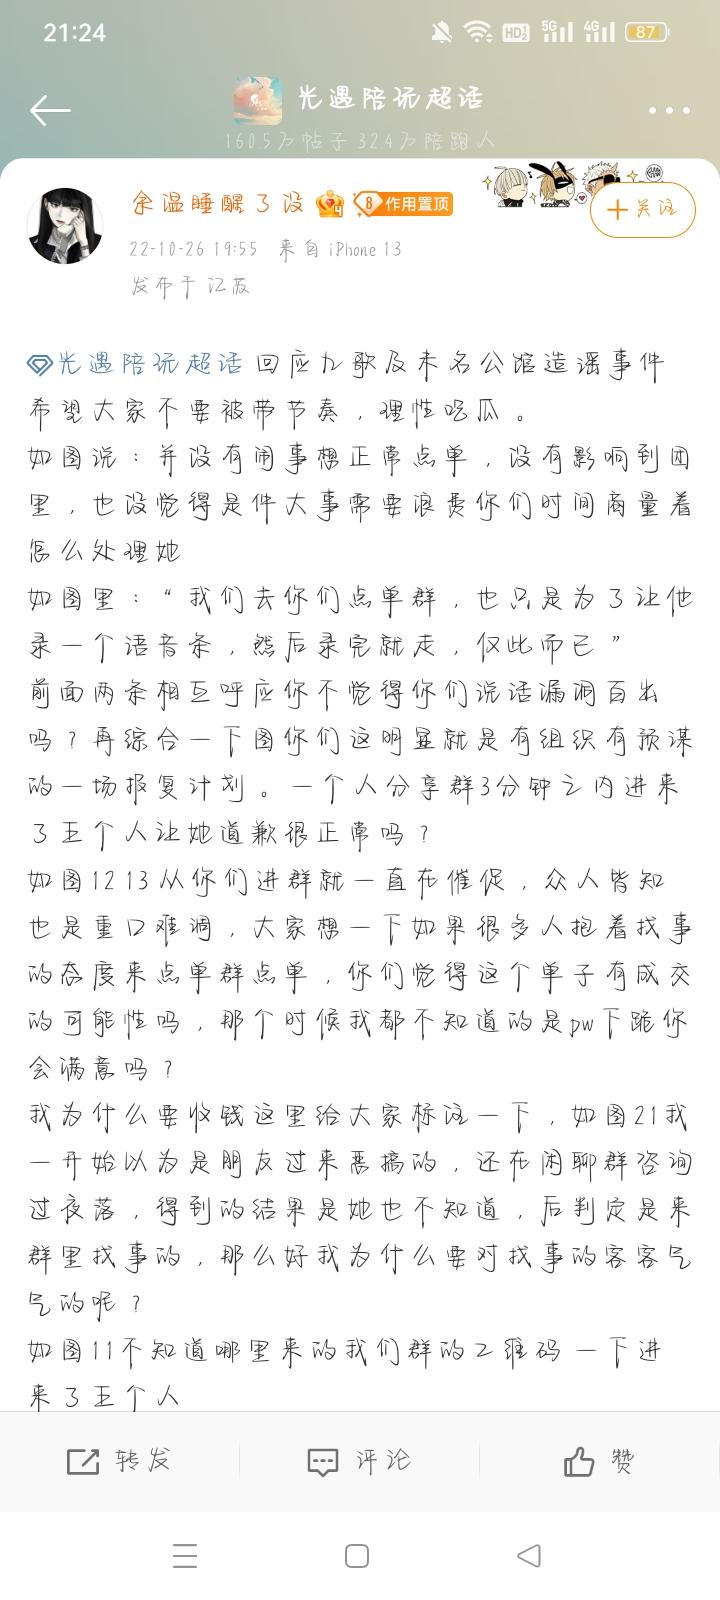 21:24
HD 1 2
5G
4G
87
光遇陪玩超话
160.5万帖子 32.4万陪跑人
余温睡醒了没
4
8 作用置顶
+关注
22-10-26 19:55 来自 iPhone 13
发布于 江苏
光遇陪玩超话 回应九歌及未名公馆造谣事件
希望大家不要被带节奏，理性吃瓜。
如图说：并没有闹事想正常点单，没有影响到团
里，也没觉得是件大事需要浪费你们时间商量着
怎么处理她
如图里：“我们去你们点单群，也只是为了让他
录一个语音条，然后录完就走，仅此而已”
前面两条相互呼应你不觉得你们说话漏洞百出
吗？再综合一下图你们这明显就是有组织有预谋
的一场报复计划。一个人分享群3分钟之内进来
了五个人让她道歉很正常吗？
如图12 13从你们进群就一直在催促，众人皆知
也是重口难调，大家想一下如果很多人抱着找事
的态度来点单群点单，你们觉得这个单子有成交
的可能性吗，那个时候我都不知道的是pw下跪你
会满意吗？
我为什么要收钱这里给大家标注一下，如图21我
一开始以为是朋友过来恶搞的，还在闲聊群咨询
过夜落，得到的结果是她也不知道，后判定是来
群里找事的，那么好我为什么要对找事的客客气
气的呢？
如图11不知道哪里来的我们群的二维码一下进
来了五个人
转发
评论
赞